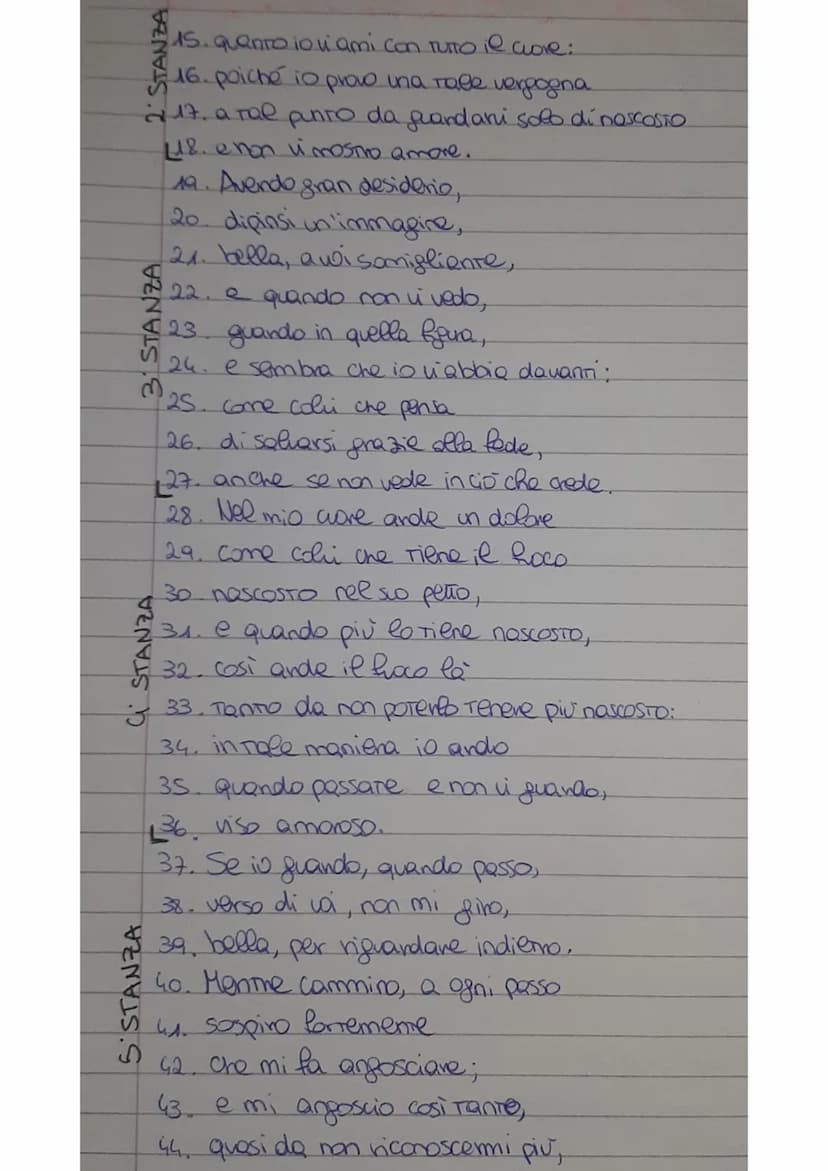 2ª STANZA
15. quanto io vi ami con tutto il cuore:
16. poiché io provo una tale vergogna
17. a tal punto da guardarvi solo di nascosto
18. e non vi mostro amore.
3ª STANZA
19. Avendo gran desiderio,
20. dipinsi un'immagine,
21. bella, a voi somigliante,
22. e quando non vi vedo,
23. guardo in quella figura,
24. e sembra che io v'abbia davanti:
25. come colui che pensa
26. di salvarsi grazie alla fede,
27. anche se non vede in ciò che crede.
4ª STANZA
28. Nel mio cuore arde un dolore
29. come colui che tiene il fuoco
30 nascosto nel suo petto,
31. e quando più lo tiene nascosto,
32. così arde il fuoco là
33. tanto da non poterlo tenere più nascosto:
34. in tale maniera io ardo
35. quando passate e non vi guardo,
36. viso amoroso.
5ª STANZA
37. Se io guardo, quando passo,
38. verso di voi, non mi giro,
39. bella, per riguardare indietro.
40. Mentre cammino, a ogni passo
41. sospiro fortemente
42. che mi fa angosciare;
43. e mi angoscio così tanto,
44. quasi da non riconoscermi più,